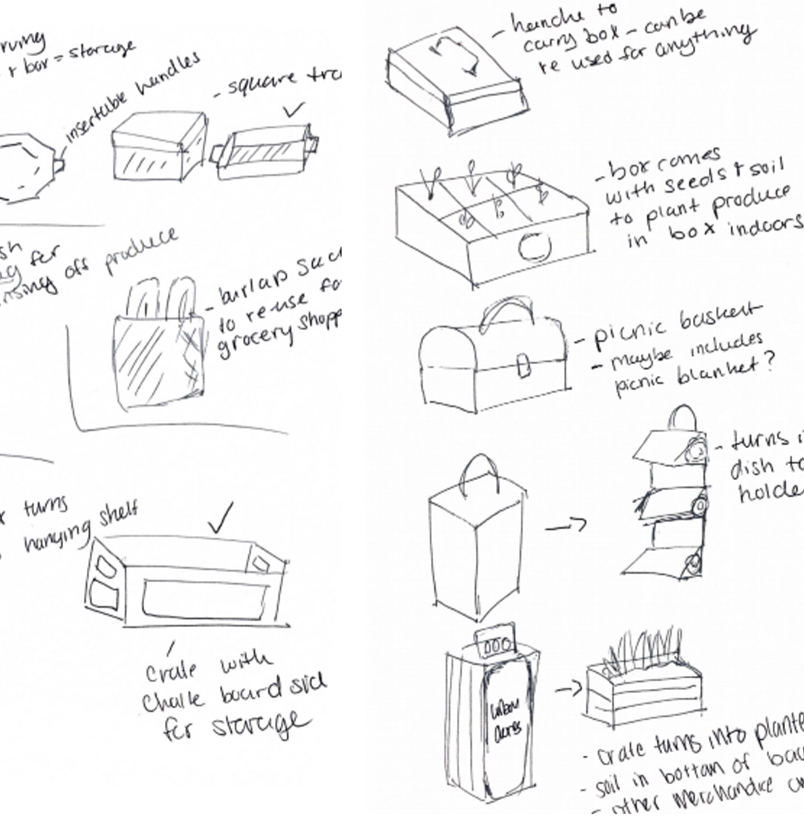 + box = storage
insertable handles
- square
for
off produce
- burlap
to re-use
grocery
turns
hanging shelf
crate with
chalk board
for storage
- handle to
carry box - can be
re used for anything
- box comes
with seeds + soil
to plant produce
in box indoors
- picnic basket
- maybe includes
picnic blanket?
- turns
dish
urban
acres
- crate turns into
- soil in bottom of
- other merchandise